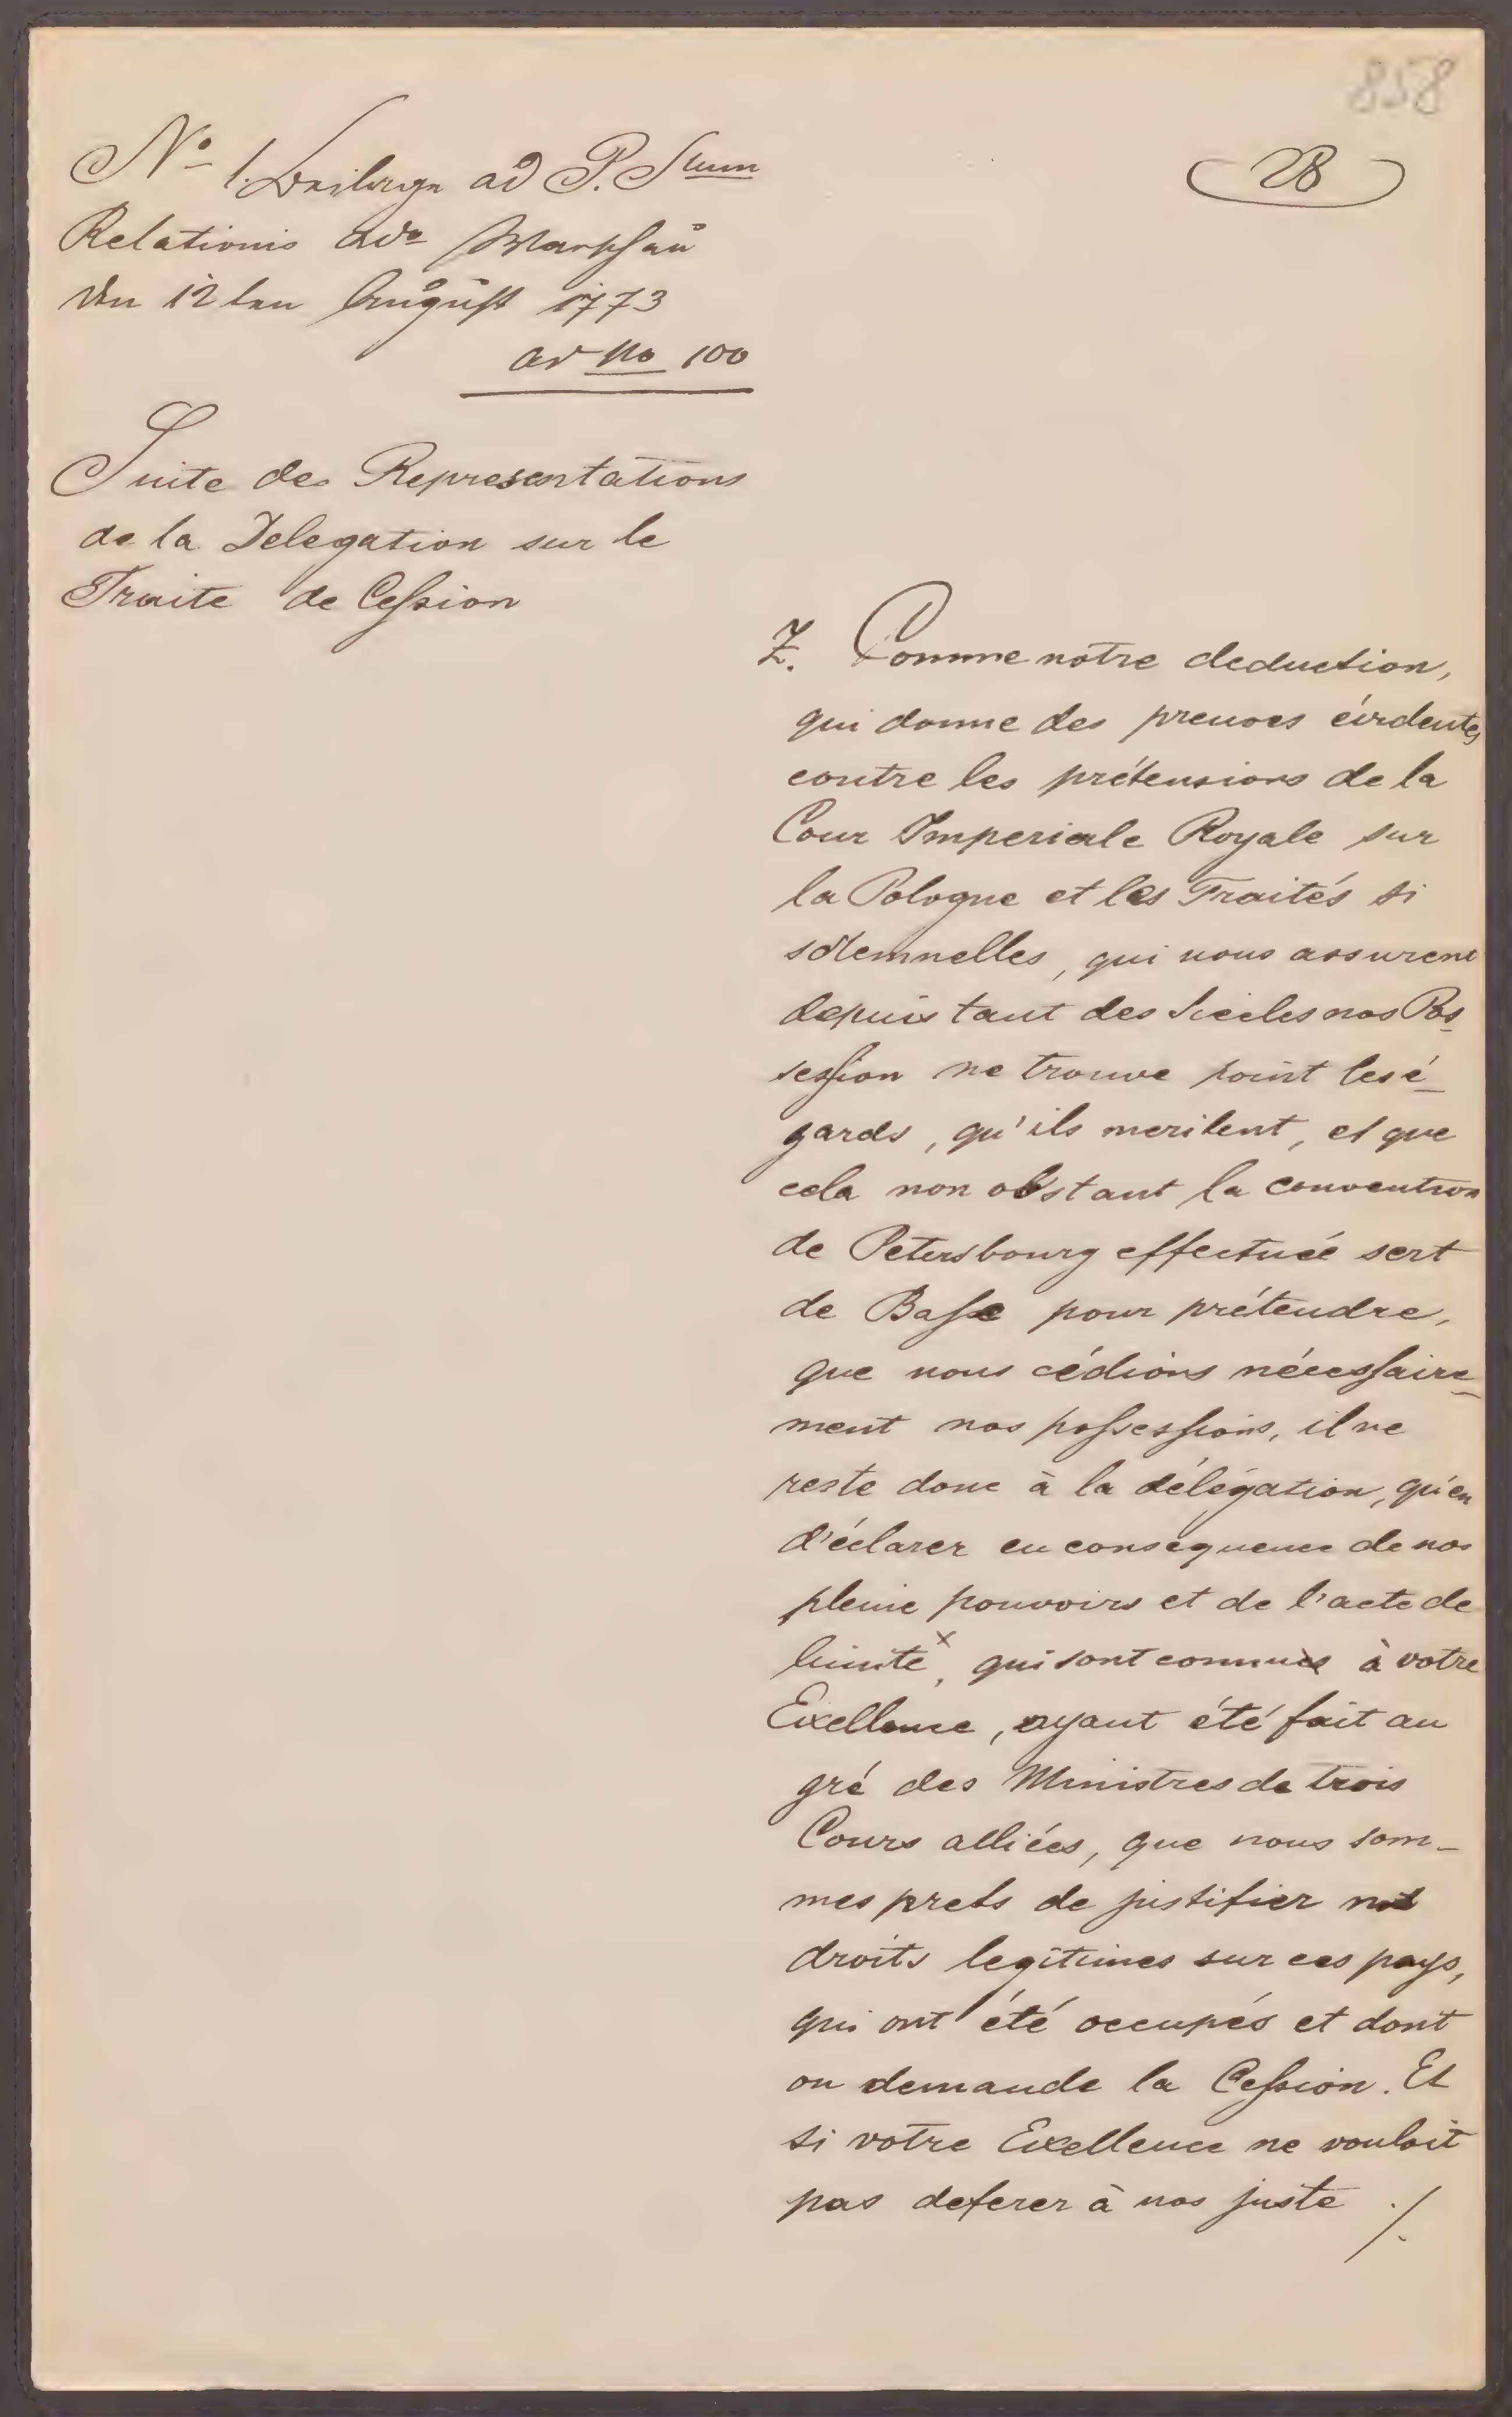 858
B
No 1. Beilage ad P. Stum
Relationis ddo Warschau
den 12ten August 1773
ad No 100
Suite des Representations
de la Delegation sur le
Traite de Cession
Z. Comme notre deduction,
qui donne des preuves évidentes
contre les prétensions de la
Cour Imperiale Royale sur
la Pologne et les Traités si
solemnelles, qui nous assurent
depuis tant des Siecles nos Pos-
session ne trouve point les é-
gards, qu'ils meritent, et que
cela non obstant la convention
de Petersbourg effectuée sert
de Basse pour prétendre,
que nous cédions nécessaire-
ment nos possessions, il ne
reste donc à la délégation, qu'en
d'éclarer en consequence de nos
pleine pouvoirs et de l'acte de
limite x, qui sont connues à votre
Exellence, ayant été fait au
gré des Ministres de trois
Cours alliées, que nous som-
mes prets de justifier nos
droits legitimes sur ces pays,
qui ont été occupés et dont
on demande la Cession. Et
si votre Exellence ne vouloit
pas deferer à nos juste ./.